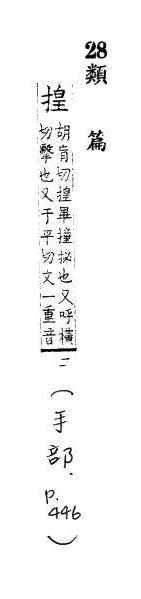 28類篇
揘
胡盲切揘畢撞挘也又呼橫
切擊也又于平切文一重音
二
(手部. p.446)